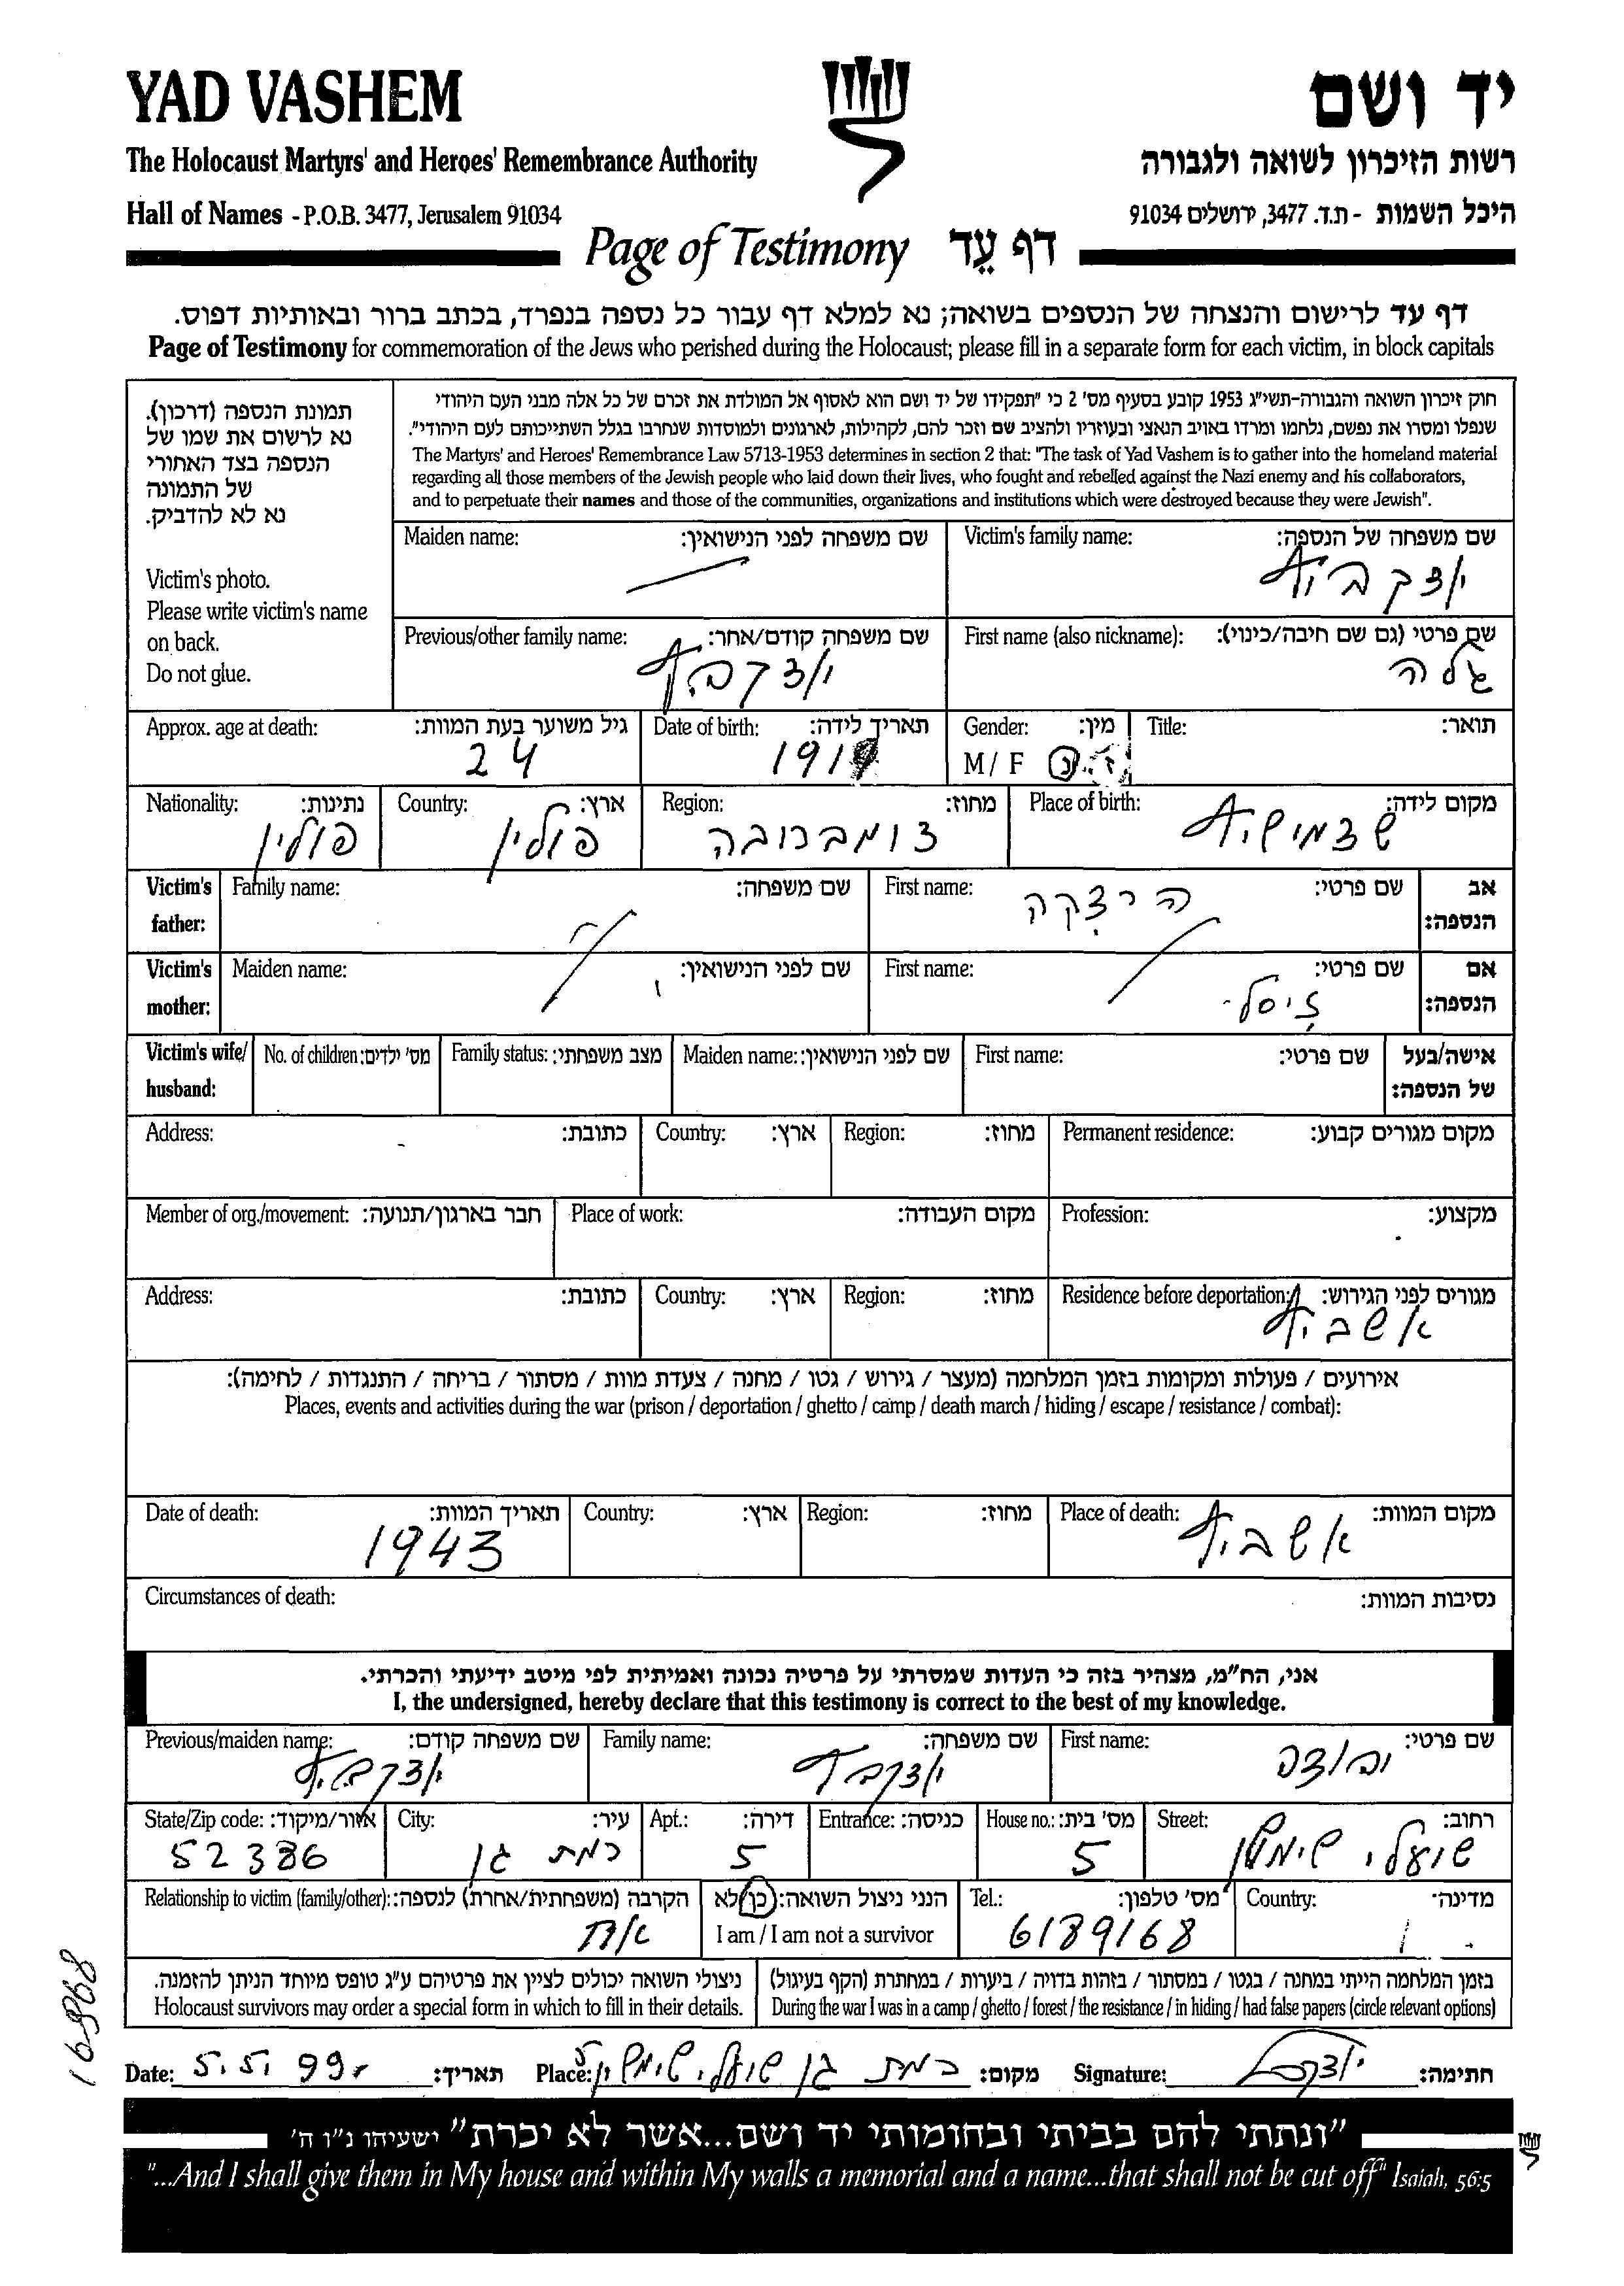 YAD VASHEM
יד ושם
The Holocaust Martyrs' and Heroes' Remembrance Authority
רשות הזיכרון לשואה ולגבורה
Hall of Names - P.O.B. 3477, Jerusalem 91034
היכל השמות - ת.ד. 3477, ירושלים 91034
Page of Testimony דף עֵד
דף עד לרישום והנצחה של הנספים בשואה; נא למלא דף עבור כל נספה בנפרד, בכתב ברור ובאותיות דפוס.
Page of Testimony for commemoration of the Jews who perished during the Holocaust; please fill in a separate form for each victim, in block capitals
תמונת הנספה (דרכון).
נא לרשום את שמו של
הנספה בצד האחורי
של התמונה
נא לא להדביק.
Victim's photo.
Please write victim's name
on back.
Do not glue.
חוק זיכרון השואה והגבורה-תשי"ג 1953 קובע בסעיף מס' 2 כי "תפקידו של יד ושם הוא לאסוף אל המולדת את זכרם של כל אלה מבני העם היהודי
שנפלו ומסרו את נפשם, נלחמו ומרדו באויב הנאצי ובעוזריו ולהציב שם וזכר להם, לקהילות, לארגונים ולמוסדות שנחרבו בגלל השתייכותם לעם היהודי".
The Martyrs' and Heroes' Remembrance Law 5713-1953 determines in section 2 that: "The task of Yad Vashem is to gather into the homeland material
regarding all those members of the Jewish people who laid down their lives, who fought and rebelled against the Nazi enemy and his collaborators,
and to perpetuate their names and those of the communities, organizations and institutions which were destroyed because they were Jewish".
Victim's family name: שם משפחה של הנספה:
Maiden name: שם משפחה לפני הנישואין:
יעקבוביץ
First name (also nickname): שם פרטי (גם שם חיבה/כינוי):
Previous/other family name: שם משפחה קודם/אחר:
גלה
Title: תואר:
Gender: מין:
Date of birth: תאריך לידה:
Approx. age at death: גיל משוער בעת המוות:
M / F ז. נ
191
24
Place of birth: מקום לידה:
Region: מחוז:
Country: ארץ:
Nationality: נתינות:
פולין
פולין
Victim's father: אב הנספה:
First name: שם פרטי:
Family name: שם משפחה:
Victim's mother: אם הנספה:
First name: שם פרטי:
Maiden name: שם לפני הנישואין:
זיסל
Victim's wife/husband: אישה/בעל של הנספה:
First name: שם פרטי:
Maiden name: שם לפני הנישואין:
Family status: מצב משפחתי:
No. of children: מס' ילדים:
Permanent residence: מקום מגורים קבוע:
Region: מחוז:
Country: ארץ:
Address: כתובת:
Profession: מקצוע:
Place of work: מקום העבודה:
Member of org./movement: חבר בארגון/תנועה:
Residence before deportation: מגורים לפני הגירוש:
Region: מחוז:
Country: ארץ:
Address: כתובת:
אשביץ
אירועים / פעולות ומקומות בזמן המלחמה (מעצר / גירוש / גטו / מחנה / צעדת מוות / מסתור / בריחה / התנגדות / לחימה):
Places, events and activities during the war (prison / deportation / ghetto / camp / death march / hiding / escape / resistance / combat):
Place of death: מקום המוות:
Region: מחוז:
Country: ארץ:
Date of death: תאריך המוות:
אשביץ
1943
Circumstances of death: נסיבות המוות:
אני, הח"מ, מצהיר בזה כי העדות שמסרתי על פרטיה נכונה ואמיתית לפי מיטב ידיעתי והכרתי.
I, the undersigned, hereby declare that this testimony is correct to the best of my knowledge.
First name: שם פרטי:
Family name: שם משפחה:
Previous/maiden name: שם משפחה קודם:
Street: רחוב:
House no.: מס' בית:
Entrance: כניסה:
Apt.: דירה:
City: עיר:
State/Zip code: אזור/מיקוד:
שועלי שימשון
5
5
רמת גן
52386
Country: מדינה:
Tel.: מס' טלפון:
הנני ניצול השואה: כן לא
I am / I am not a survivor
Relationship to victim (family/other): הקרבה (משפחתית/אחרת) לנספה:
6189168
אח
בזמן המלחמה הייתי במחנה / בגטו / במסתור / בזהות בדויה / ביערות / במחתרת (הקף בעיגול)
During the war I was in a camp / ghetto / forest / the resistance / in hiding / had false papers (circle relevant options)
ניצולי השואה יכולים לציין את פרטיהם ע"ג טופס מיוחד הניתן להזמנה.
Holocaust survivors may order a special form in which to fill in their details.
Date: 5.5.99 תאריך:
Place: רמת גן שועלי שימשון 5 מקום:
Signature: חתימה:
"ונתתי להם בביתי ובחומותי יד ושם...אשר לא יכרת" ישעיהו נ"ו ה'
"...And I shall give them in My house and within My walls a memorial and a name...that shall not be cut off" Isaiah, 56:5